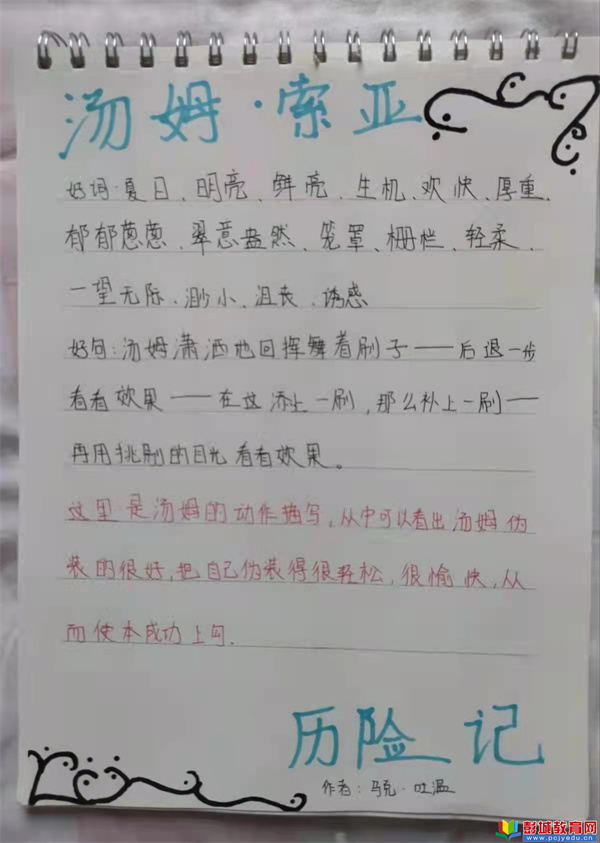 汤姆·索亚
好词:夏日、明亮、鲜亮、生机、欢快、厚重、
郁郁葱葱、翠意盎然、笼罩、栅栏、轻柔、
一望无际、渺小、沮丧、诱惑
好句:汤姆潇洒地回挥舞着刷子——后退一步
看看效果——在这添上一刷,那么补上一刷——
再用挑剔的目光看看效果。
这里是汤姆的动作描写,从中可以看出汤姆伪
装的很好,把自己伪装得很轻松,很愉快,从
而使本成功上勾.
历险记
作者:马克·吐温
彭城教育网
www.pcjyedu.cn